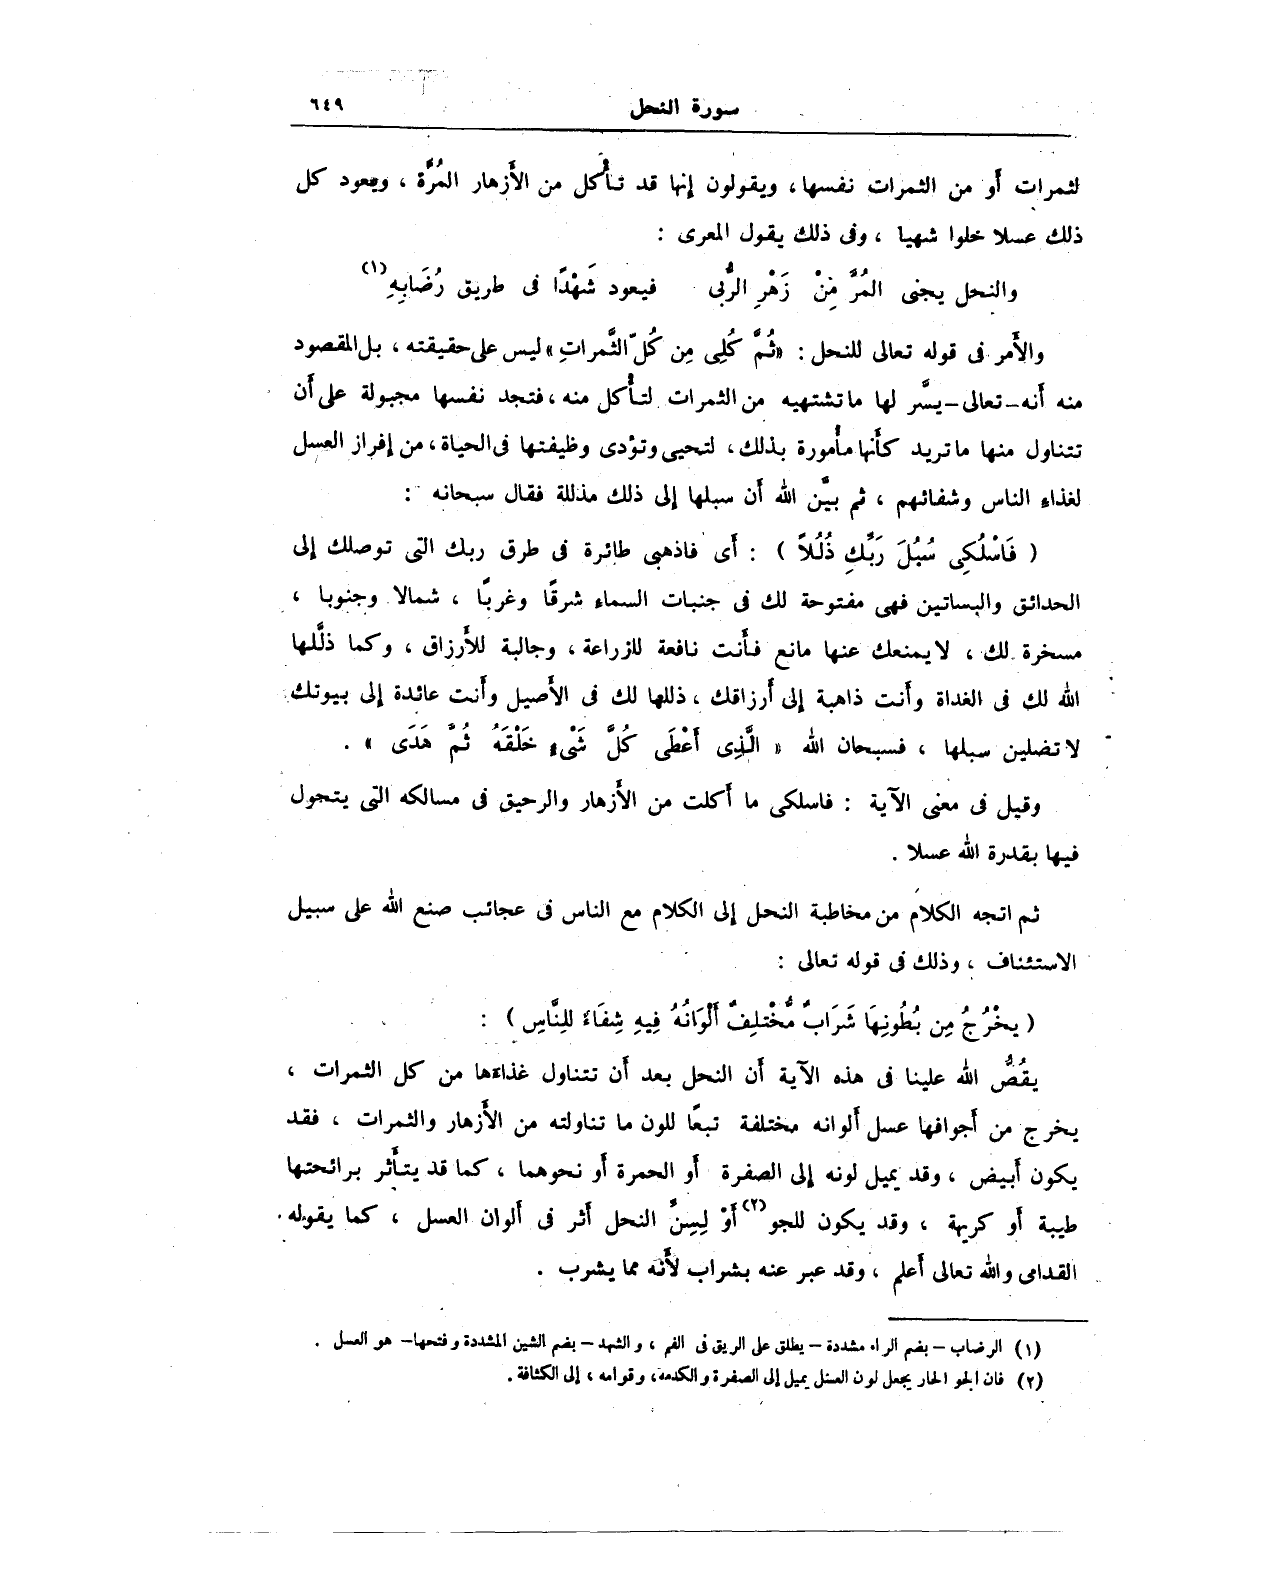 سورة النحل ٦٤٩
لثمرات أو من الثمرات نفسها، ويقولون إنها قد تأْكل من الأَزهار المُرَّة ، ويعود كل
ذلك عسلا حلوا شهيا ، وفى ذلك يقول المعرى :
والنحل يجنى المُرَّ مِنْ زَهْرِ الرُّبى فيعود شَهْدًا فى طريق رُضَابِهِ (١)
والأَمر فى قوله تعالى للنحل : «ثُمَّ كُلِى مِن كُلّ الثَّمراتِ» ليس على حقيقته ، بل المقصود
منه أنه - تعالى - يسَّر لها ما تشتهيه من الثمرات لتأْكل منه ، فتجد نفسها مجبولة على أن
تتناول منها ما تريد كأَنها مأْمورة بذلك ، لتحيى وتؤدى وظيفتها فى الحياة ، من إفراز العسل
لغذاء الناس وشفائهم ، ثم بيَّن الله أن سبلها إلى ذلك مذللة فقال سبحانه :
( فَاسْلُكِى سُبُلَ رَبِّكِ ذُلُلاً ) : أى فاذهبى طائرة فى طرق ربك التى توصلك إلى
الحدائق والبساتين فهى مفتوحة لك فى جنبات السماء شرقًا وغربًا ، شمالا وجنوبا ،
مسخرة لك ، لا يمنعك عنها مانع فأَنت نافعة للزراعة ، وجالبة للأَرزاق ، وكما ذلَّلها
الله لك فى الغداة وأَنت ذاهبة إلى أَرزاقك ، ذللها لك فى الأَصيل وأَنت عائدة إلى بيوتك
لا تضلين سبلها ، فسبحان الله « الَّذِى أَعْطَى كُلَّ شَىْءٍ خَلْقَهُ ثُمَّ هَدَى » .
وقيل فى معنى الآية : فاسلكى ما أَكلت من الأَزهار والرحيق فى مسالكه التى يتحول
فيها بقدرة الله عسلا .
ثم اتجه الكلام من مخاطبة النحل إلى الكلام مع الناس فى عجائب صنع الله على سبيل
الاستئناف ، وذلك فى قوله تعالى :
( يخْرُجُ مِن بُطُونِهَا شَرَابٌ مُّخْتلِفٌ أَلْوَانُهُ فِيهِ شِفَاءٌ للِنَّاسِ ) :
يقُصُّ الله علينا فى هذه الآية أن النحل بعد أن تتناول غذاءها من كل الثمرات ،
يخرج من أَجوافها عسل أَلوانه مختلفة تبعًا للون ما تناولته من الأَزهار والثمرات ، فقد
يكون أَبيض ، وقد يميل لونه إلى الصفرة أو الحمرة أو نحوهما ، كما قد يتأَثر برائحتها
طيبة أو كريهة ، وقد يكون للجو (٢) أَوْ لِسِنِّ النحل أثر فى ألوان العسل ، كما يقوله
القدامى والله تعالى أَعلم ، وقد عبر عنه بشراب لأَنه مما يشرب .
(١) الرضاب - بضم الراء مشددة - يطلق على الريق فى الفم ، والشهد - بضم الشين المشددة وفتحها - هو العسل .
(٢) فان الجو الحار يجعل لون العسل يميل إلى الصفرة والكدمة ، وقوامه ، إلى الكثافة .